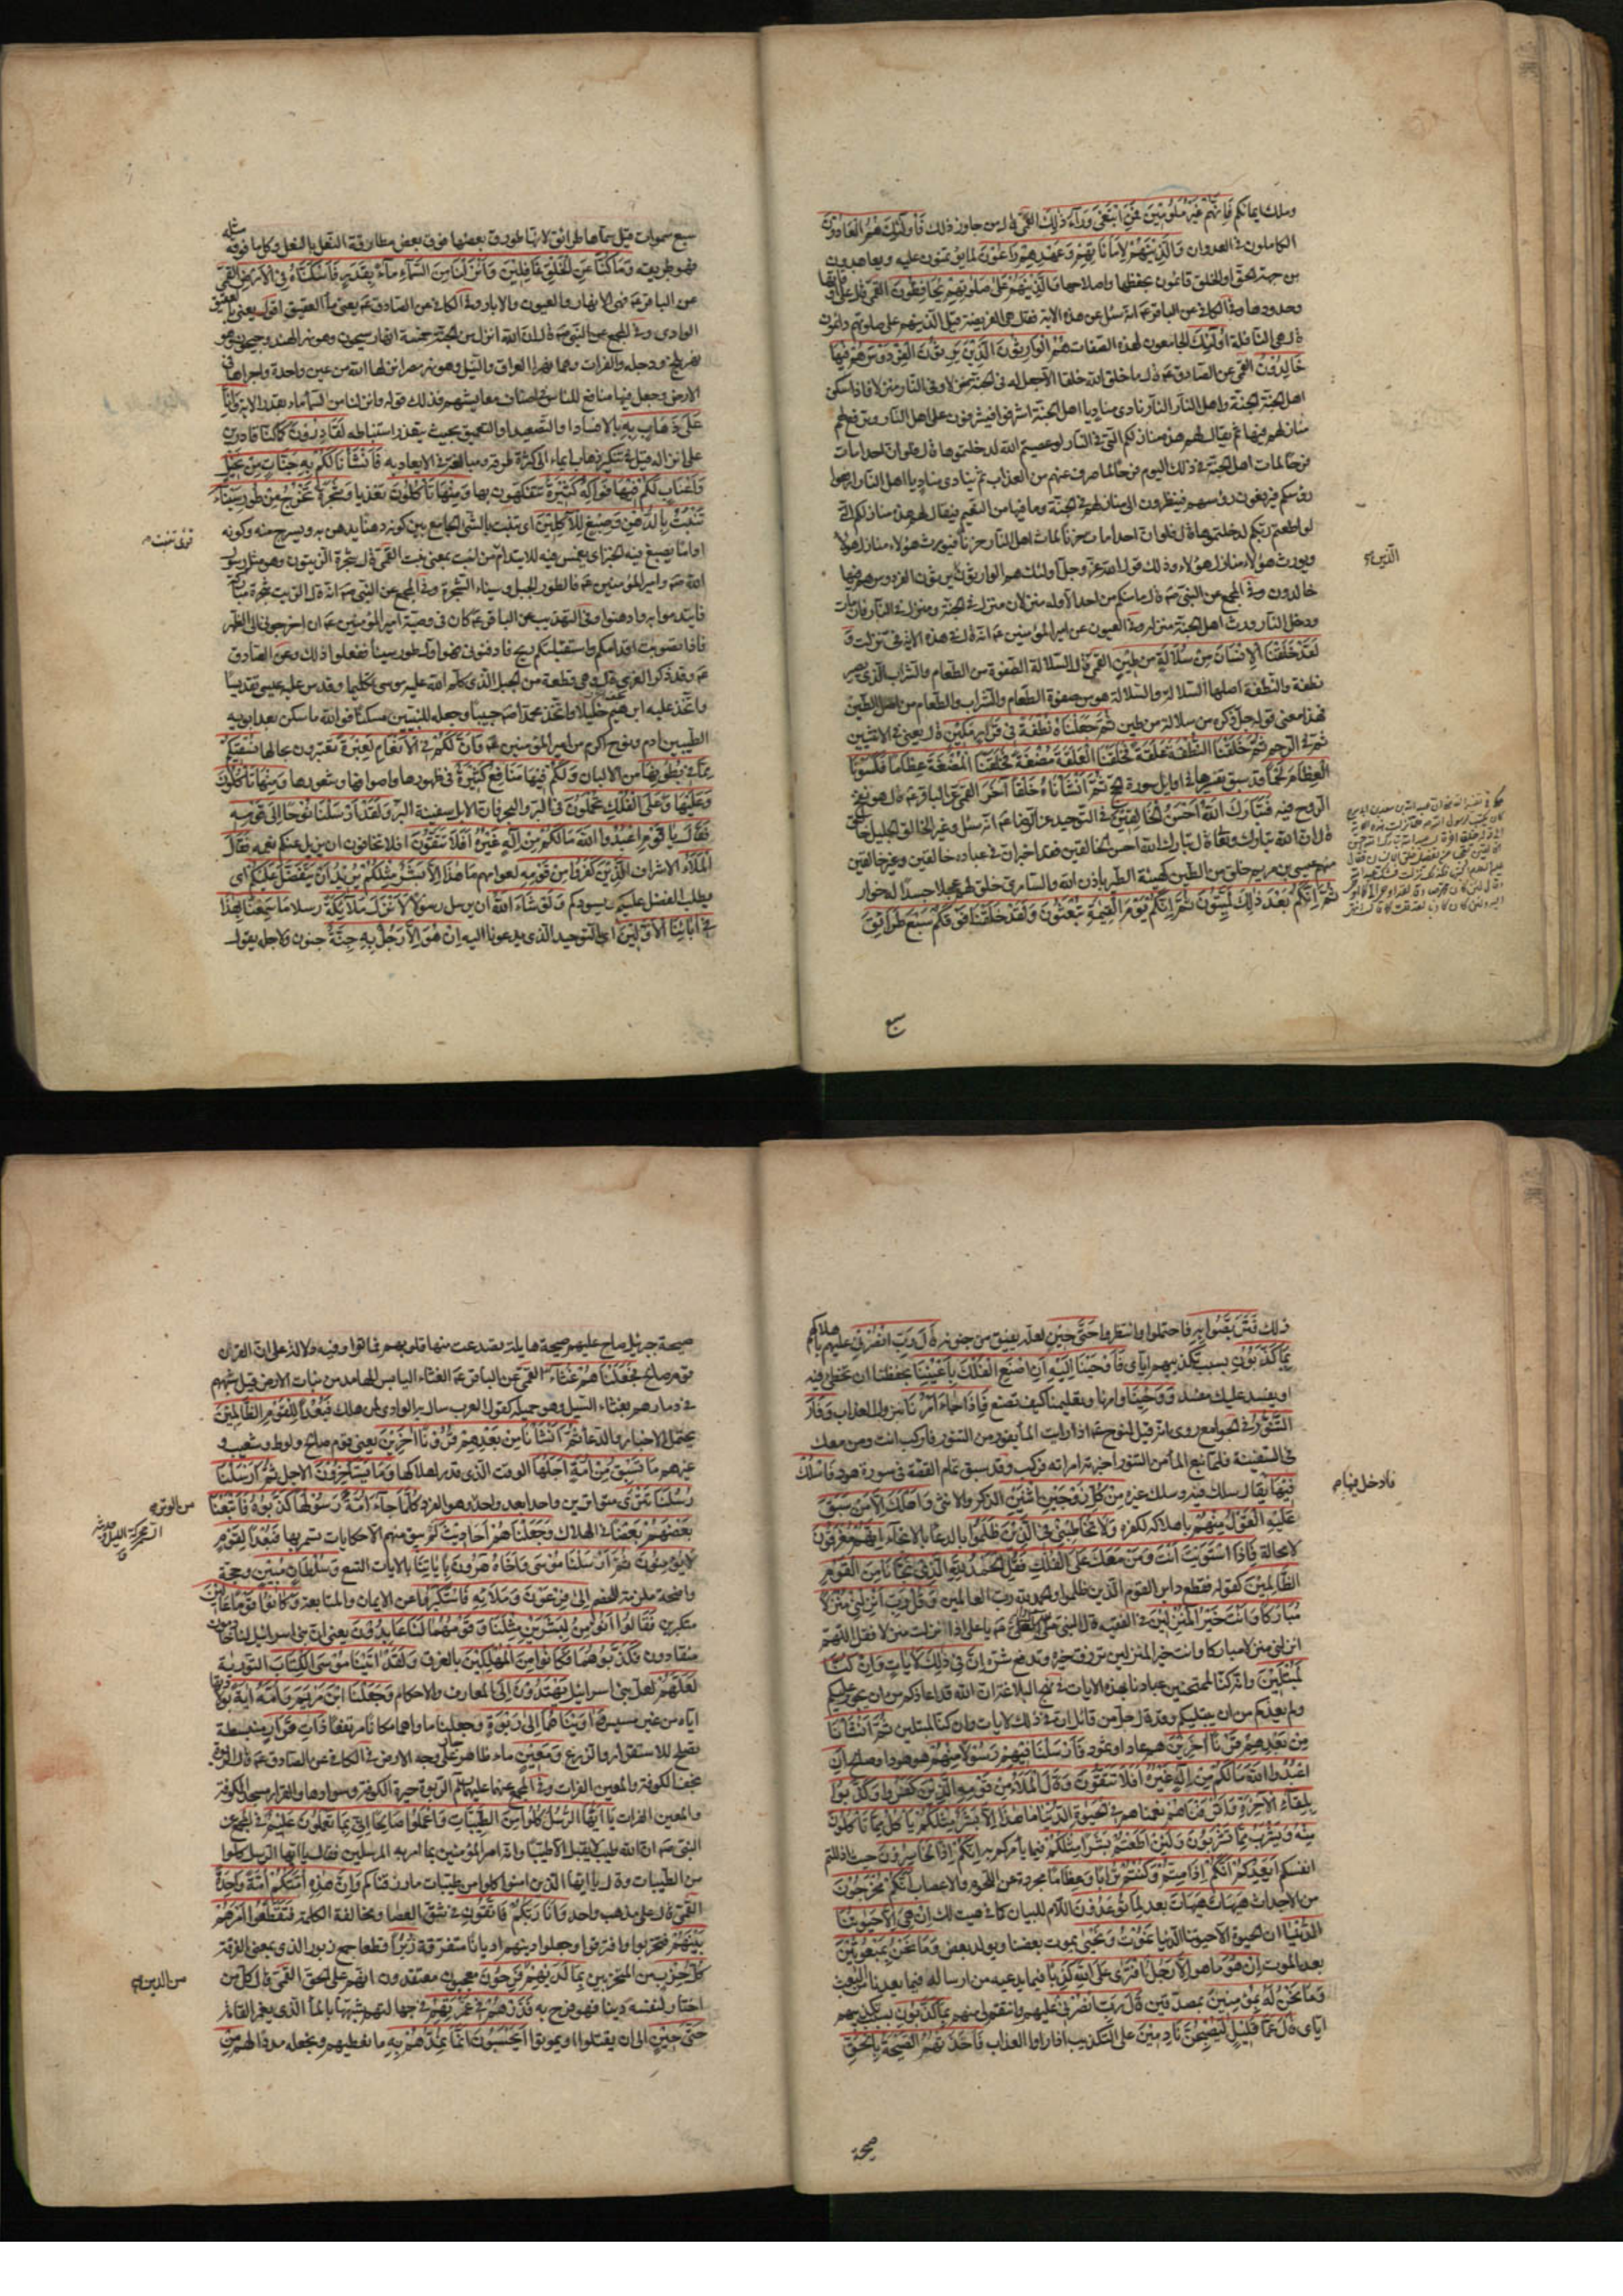 وملك ايمانكم فانهم غير ملومين فمن ابتغى ورآء ذلك القمي قال من جاوز ذلك فأولئك هم العادون
الكاملون في العدوان والذين هم لاماناتهم وعهدهم راعون لما يؤتمنون عليه ويعاهدون
من جهة الحق او الخلق قائمون بحفظها واصلاحها والذين هم على صلوتهم يحافظون القمي قال على اوقاتها
وحدودها وفي الكافي عن الباقر عم انه سئل عن هذه الاية فقال هي الفريضة قيل الذين هم على صلوتهم دائمون
قال هي النافلة أولئك الجامعون لهذه الصفات هم الوارثون الذين يرثون الفردوس هم فيها
خالدون القمي عن الصادق عم قال ما خلق الله خلقا الا جعل له في الجنة منزلا وفي النار منزلا فاذا سكن
اهل الجنة الجنة واهل النار النار نادى مناد يا اهل الجنة اشرفوا فيشرفون على اهل النار وترفع لهم
منازلهم فيها ثم يقال لهم هذه منازلكم التي في النار لو عصيتم الله لدخلتموها قال فلو ان احدا مات
فرحا لمات اهل الجنة في ذلك اليوم فرحا لما صرف عنهم من العذاب ثم ينادي مناد يا اهل النار ارفعوا
رؤسكم فيرفعون رؤسهم فينظرون الى منازلهم في الجنة وما فيها من النعيم فيقال لهم هذه منازلكم التي
لو اطعتم ربكم لدخلتموها قال فلو ان احدا مات حزنا لمات اهل النار حزنا فيورث هؤلاء منازل هؤلاء
ويورث هؤلاء منازل هؤلاء وذلك قول الله عز وجل أولئك هم الوارثون يرثون الفردوس هم فيها
الذين
خالدون وفي المجمع عن النبي ص قال ما منكم من احد الا وله منزلان منزل في الجنة ومنزل في النار فان مات
ودخل النار ورث اهل الجنة منزله وفي العيون عن امير المؤمنين عم انه قال في هذه الاية في نزلت و
لقد خلقنا الانسان من سلالة من طين القمي قال السلالة الصفوة من الطعام والشراب الذي يصير
نطفة والنطفة اصلها السلالة والسلالة هو من صفوة الطعام والشراب والطعام من اصل الطين
فهذا معنى قوله جل ذكره من سلالة من طين ثم جعلناه نطفة في قرار مكين قال يعني في الانثيين
ثم في الرحم ثم خلقنا النطفة علقة فخلقنا العلقة مضغة فخلقنا المضغة عظاما فكسونا
العظام لحما قد سبق تفسيرها في اوايل سورة الحج ثم انشأناه خلقا آخر القمي عن الباقر عم قال هو نفخ
الروح فيه فتبارك الله احسن الخالقين في التوحيد عن الرضا عم انه سئل وغير الخالق الجليل خالق
قال ان الله تبارك وتعالى قال تبارك الله احسن الخالقين فقد اخبر ان في عباده خالقين وغير خالقين
منهم عيسى بن مريم خلق من الطين كهيئة الطير باذن الله والسامري خلق لهم عجلا جسدا له خوار
ثم انكم بعد ذلك لميتون ثم انكم يوم القيمة تبعثون ولقد خلقنا فوقكم سبع طرائق
سبع
سبع سموات قيل سماها طرائق لانها طورق بعضها فوق بعض مطارقة النعل بالنعل وكل ما فوقه مثله
فهو طريقه وما كنا عن الخلق غافلين وانزلنا من السماء مآء بقدر فأسكناه في الارض القمي
عن الباقر عم فهي الانهار والعيون والابار وفي الكافي عن الصادق عم يعني مآء العقيق اقول يعني بالعقيق
الوادي وفي المجمع عن النبي ص قال ان الله انزل من الجنة خمسة انهار سيحون وهو نهر الهند وجيحون وهو
نهر بلخ ودجلة والفرات وهما نهرا العراق والنيل وهو نهر مصر انزلها الله من عين واحدة واجراها في
الارض وجعل فيها منافع للناس في اصناف معايشهم فذلك قوله وانزلنا من السماء ماء بقدر الاية وانا
على ذهاب به بالافساد او التصعيد او التعميق بحيث يتعذر استنباطه لقادرون كما كنا قادرين
على انزاله قيل في تنكير ذهاب ايماء الى كثرة طرقه ومبالغة في الابعاد به فأنشأنا لكم به جنات من نخيل
واعناب لكم فيها فواكه كثيرة تتفكهون بها ومنها تأكلون تغذيا وشجرة تخرج من طور سيناء
تنبت بالدهن وصبغ للآكلين اي تنبت بالشيء الجامع بين كونه دهنا يدهن به ويسرج منه وكونه
اداما يصبغ فيه الخبز اي يغمس فيه للايتدام
قال شجرة الزيتون وهو مثل رسول
الله ص وامير المؤمنين عم فالطور الجبل وسيناء الشجرة وفي المجمع عن النبي ص انه قال الزيت شجرة مباركة
فايتدموا به وادهنوا وفي التهذيب عن الباقر عم كان في وصية امير المؤمنين عم ان اخرجوني الى الظهر
فاذا تصوبت اقدامكم واستقبلتكم ريح فادفنوني فهو اول طور سينا ففعلوا ذلك وعن الصادق
عم وقد ذكر الغري قال وهي قطعة من الجبل الذي كلم الله عليه موسى تكليما وقدس عليه عيسى تقديسا
واتخذ عليه ابراهيم خليلا واتخذ محمدا ص حبيبا وجعله للنبيين مسكنا فوالله ما سكن بعد ابويه
الطيبين ادم ونوح اكرم من امير المؤمنين عم وان لكم في الانعام لعبرة تعتبرون بحالها نسقيكم
مما في بطونها من الالبان ولكم فيها منافع كثيرة في ظهورها واصوافها وشعورها ومنها تأكلون
وعليها وعلى الفلك تحملون في البر والبحر فان الابل سفينة البر ولقد ارسلنا نوحا الى قومه
فقال يا قوم اعبدوا الله ما لكم من اله غيره افلا تتقون افلا تخافون ان يزيل عنكم نعمه فقال
الملأ الاشراف الذين كفروا من قومه لعوامهم ما هذا الا بشر مثلكم يريد ان يتفضل عليكم اي
يطلب الفضل عليكم ويسودكم ولو شاء الله ان يرسل رسولا لانزل ملائكة رسلا ما سمعنا بهذا
في ابائنا الاولين اي التوحيد الذي يدعونا اليه ان هو الا رجل به جنة جنون ولاجله يقول
ذلك فتربصوا به فاحتملوا وانتظروا حتى حين لعله يفيق من جنونه قال رب انصرني عليهم باهلاكهم
بما كذبون بسبب تكذيبهم اياي فأوحينا اليه ان اصنع الفلك بأعيننا بحفظنا ان تخطئ فيه
او يفسد عليك مفسد ووحينا وامرنا وتعليمنا كيف تصنع فإذا جاء امرنا نزول العذاب وفار
التنور في الجوامع روي انه قيل لنوح عم اذا رايت المأ يفور من التنور فاركب انت ومن معك
في السفينة فلما نبع المأ من التنور اخبرته امراته فركب وقد سبق تمام القصة في سورة هود فاسلك
فيها يقال سلك فيه وسلك غيره من كل زوجين اثنين الذكر والانثى واهلك الا من سبق
فادخل فيها
عليه القول منهم باهلاكه لكفره ولا تخاطبني في الذين ظلموا بالدعا بالانجاء انهم مغرقون
لا محالة فاذا استويت انت ومن معك على الفلك فقل الحمد لله الذي نجانا من القوم
الظالمين كقوله فقطع دابر القوم الذين ظلموا والحمد لله رب العالمين وقل رب انزلني منزلا
مباركا وانت خير المنزلين في الفقيه قال النبي ص لعلي عم يا علي اذا نزلت منزلا فقل اللهم
انزلني منزلا مباركا وانت خير المنزلين ترزق خيره ويدفع شره ان في ذلك لايات وان كنا
لمبتلين وانه كنا لممتحنين عبادنا بهذه الايات في نهج البلاغة ان الله قد اعاذكم من ان يجور عليكم
ولم يعذكم من ان يبتليكم وقد قال جل من قائل ان في ذلك لايات وان كنا لمبتلين ثم انشأنا
من بعدهم قرنا آخرين هم عاد او ثمود فأرسلنا فيهم رسولا منهم هو هود او صالح ان
اعبدوا الله ما لكم من اله غيره افلا تتقون وقال الملأ من قومه الذين كفروا وكذبوا
بلقاء الآخرة واترفناهم نعمناهم في الحيوة الدنيا ما هذا الا بشر مثلكم يأكل مما تأكلون
منه ويشرب مما تشربون ولئن اطعتم بشرا مثلكم فيما يأمركم به انكم اذا لخاسرون حيث اذللتم
انفسكم ايعدكم انكم اذا متم وكنتم ترابا وعظاما مجردة عن اللحوم والاعصاب انكم مخرجون
من الاجداث هيهات هيهات بعد لما توعدون اللام للبيان كما في هيت لك ان هي الا حيوتنا
الدنيا ان الحيوة الا حيوتنا الدنيا نموت ونحيى يموت بعضنا ويولد بعض وما نحن بمبعوثين
بعد الموت ان هو ما هو الا رجل افترى على الله كذبا فيما يدعيه من ارساله فيما يعدنا من البعث
وما نحن له بمؤمنين بمصدقين قال رب انصرني عليهم وانتقم لي منهم بما كذبون بسبب تكذيبهم
اياي قال عما قليل ليصبحن نادمين على التكذيب اذا راوا العذاب فأخذتهم الصيحة بالحق
صيحة
صيحة جبرئيل صاح عليهم صيحة هايلة تصدعت منها قلوبهم فماتوا وفيه دلالة على ان القرن
قوم صالح فجعلناهم غثاء القمي عن الباقر عم الغثاء اليابس الهامد من نبات الارض قيل شبههم
في دمارهم بغثاء السيل وهو حميله كقول العرب سال به الوادي لمن هلك فبعدا للقوم الظالمين
يحتمل الاخبار والدعأ ثم انشأنا من بعدهم قرونا آخرين يعني قوم صالح ولوط وشعيب و
غيرهم ما تسبق من امة اجلها الوقت الذي قدر لهلاكها وما يستأخرون الاجل ثم ارسلنا
رسلنا تترى متواترين واحدا بعد واحد وهو الفرد كلما جآء امة رسولها كذبوه فأتبعنا
من الوتر
بعضهم بعضا في الهلاك وجعلناهم احاديث لم يبق منهم الا حكايات يسمر بها فبعدا لقوم
لا يؤمنون ثم ارسلنا موسى واخاه هرون بآياتنا بالايات التسع وسلطان مبين وحجة
واضحة ملزمة للخصم الى فرعون وملائه فاستكبروا عن الايمان والمتابعة وكانوا قوما عالين
متكبرين فقالوا انؤمن لبشرين مثلنا وقومهما لنا عابدون يعني ان بني اسرائيل لنا خادمون
منقادون فكذبوهما فكانوا من المهلكين بالغرق ولقد آتينا موسى الكتاب التورية
لعلهم لعل بني اسرائيل يهتدون الى المعارف والاحكام وجعلنا ابن مريم وامه آية بولادتها
اياه من غير مسيس وآويناهما الى ربوة وجعلنا ماواهما مكانا مرتفعا ذات قرار منبسطة
تصلح للاستقرار والزرع ومعين ماء ظاهر جار على وجه الارض في الكافي عن الصادق عم قال الربوة
نجف الكوفة والمعين الفرات وفي المجمع عنهما عليهما السلم الربوة حيرة الكوفة وسوادها والقرار مسجد الكوفة
والمعين الفرات يا ايها الرسل كلوا من الطيبات واعملوا صالحا اني بما تعملون عليم في المجمع عن
النبي ص ان الله طيب لا يقبل الا طيبا وانه امر المؤمنين بما امر به المرسلين فقال يا ايها الرسل كلوا
من الطيبات وقال يا ايها الذين امنوا كلوا من طيبات ما رزقناكم وان هذه امتكم امة واحدة
القمي قال على مذهب واحد وانا ربكم فاتقون في شق العصا ومخالفة الكلمة فتقطعوا امرهم
بينهم فتحزبوا وافترقوا وجعلوا دينهم اديانا متفرقة زبرا قطعا جمع زبور الذي بمعنى الفرقة
كل حزب من المتحزبين بما لديهم فرحون معجبون معتقدون انهم على الحق القمي قال كل من
من الدين
اختار لنفسه دينا فهو فرح به فذرهم في غمرتهم في جهالتهم شبهها بالمأ الذي يغمر القامة
حتى حين الى ان يقتلوا او يموتوا ايحسبون انما نمدهم به ما نعطيهم ونجعله مددا لهم من